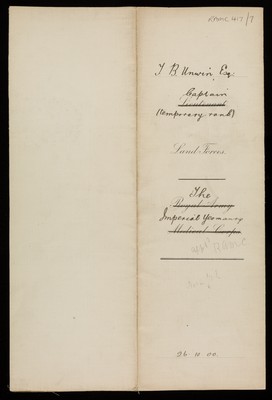 RAMC 417/7
T B Unwin, Esq
Captain
Lieutenant
(temporary rank)
Land Forces.
The
Royal Army
Imperial Yeomanry
Medical Corps
26 10 00.